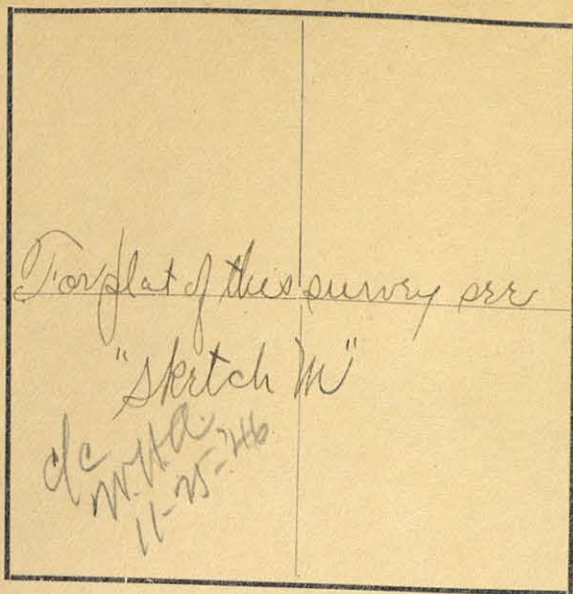 For plat of this survey see
"Sketch M"
c/c
W.H.A.
11-25-'46